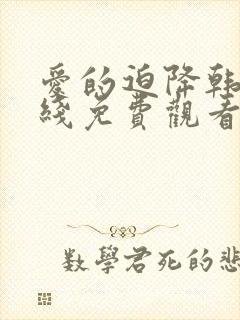 愛的迫降韩
綫免費觀看
數學君死的悲